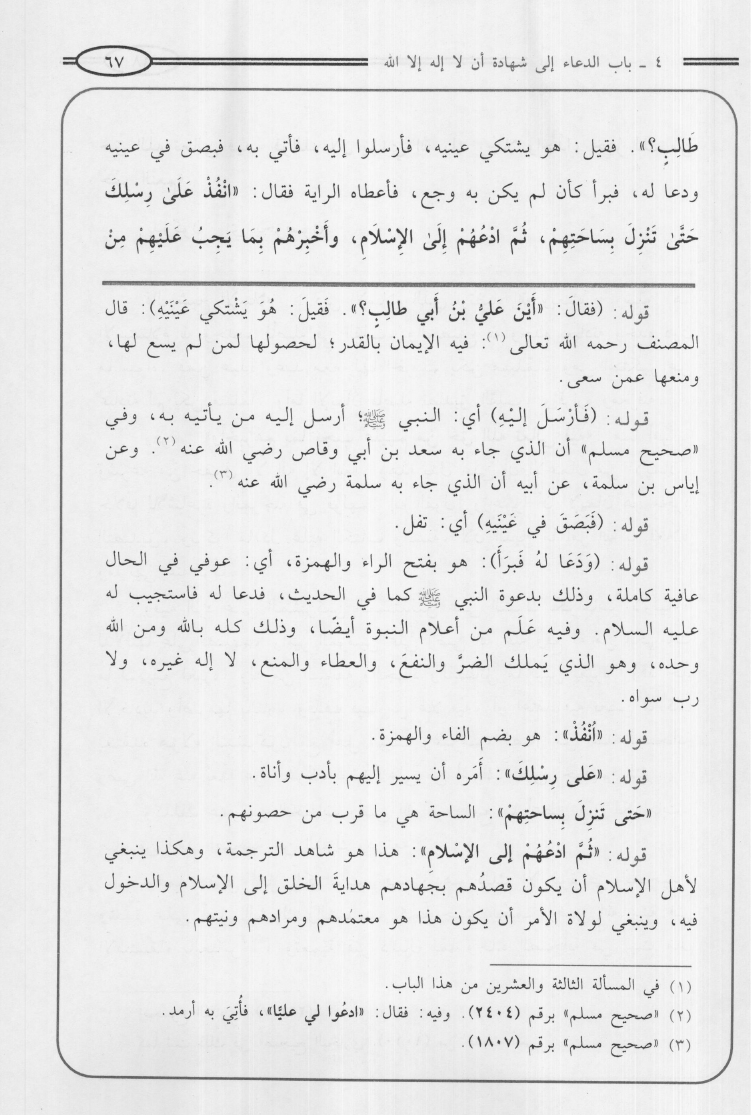 ٤ ـ باب الدعاء إلى شهادة أن لا إله إلا الله
٦٧
طَالِبٍ؟». فقيل: هو يشتكي عينيه، فأرسلوا إليه، فأتي به، فبصق في عينيه
ودعا له، فبرأ كأن لم يكن به وجع، فأعطاه الراية فقال: «انْفُذْ عَلَىٰ رِسْلِكَ
حَتَّىٰ تَنْزِلَ بِسَاحَتِهِمْ، ثُمَّ ادْعُهُمْ إِلَىٰ الإِسْلَامِ، وأَخْبِرْهُمْ بِمَا يَجِبُ عَلَيْهِمْ مِنْ
قوله: (فقالَ: «أَيْنَ عَليُّ بْنُ أَبي طالِبٍ؟». فَقيلَ: هُوَ يَشْتكي عَيْنَيْهِ): قال
المصنف رحمه الله تعالى(١): فيه الإيمان بالقدر؛ لحصولها لمن لم يسع لها،
ومنعها عمن سعى.
قوله: (فَأرْسَلَ إليْهِ) أي: النبي ﷺ؛ أرسل إليه من يأتيه به، وفي
«صحيح مسلم» أن الذي جاء به سعد بن أبي وقاص رضي الله عنه(٢). وعن
إياس بن سلمة، عن أبيه أن الذي جاء به سلمة رضي الله عنه(٣).
قوله: (فَبَصَقَ في عَيْنَيهِ) أي: تفل.
قوله: (وَدَعَا لهُ فَبرَأَ): هو بفتح الراء والهمزة، أي: عوفي في الحال
عافية كاملة، وذلك بدعوة النبي ﷺ كما في الحديث، فدعا له فاستجيب له
عليه السلام. وفيه عَلَم من أعلام النبوة أيضًا، وذلك كله بالله ومن الله
وحده، وهو الذي يَملك الضرَّ والنفعَ، والعطاء والمنع، لا إله غيره، ولا
رب سواه.
قوله: «اُنْفُذْ»: هو بضم الفاء والهمزة.
قوله: «عَلى رِسْلِكَ»: أَمَره أن يسير إليهم بأدب وأناة.
«حَتى تَنزِلَ بِساحتِهمْ»: الساحة هي ما قرب من حصونهم.
قوله: «ثُمَّ ادْعُهُمْ إلى الإسْلامِ»: هذا هو شاهد الترجمة، وهكذا ينبغي
لأهل الإسلام أن يكون قصدُهم بجهادهم هدايةَ الخلق إلى الإسلام والدخول
فيه، وينبغي لولاة الأمر أن يكون هذا هو معتمَدهم ومرادهم ونيتهم.
(١) في المسألة الثالثة والعشرين من هذا الباب.
(٢) «صحيح مسلم» برقم (٢٤٠٤). وفيه: فقال: «ادعُوا لي عليًا»، فأُتِيَ به أرمد.
(٣) «صحيح مسلم» برقم (١٨٠٧).